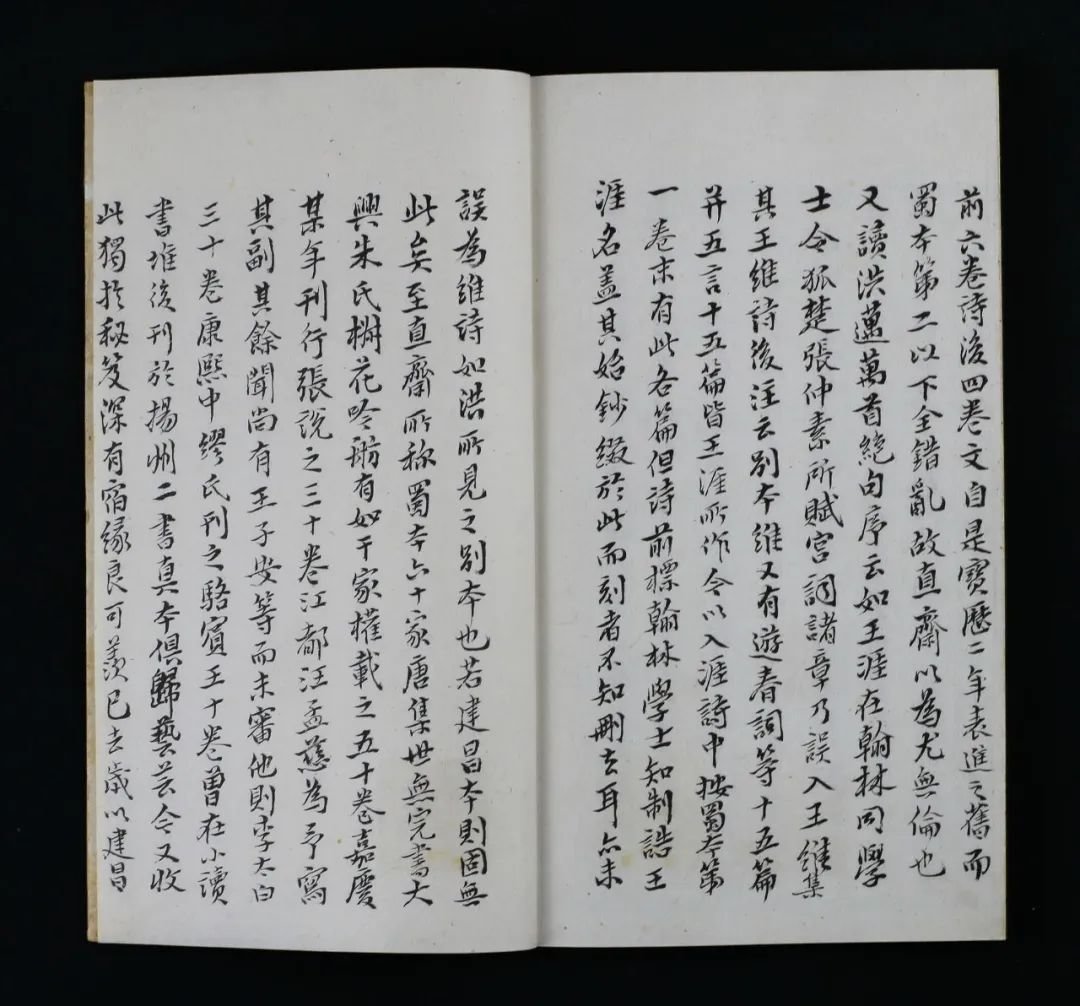 前六卷詩後四卷文自是寶歷二年表進之舊而
蜀本第二以下全錯亂故直齋以為尤無倫也
又讀洪邁萬首絕句序云如王涯在翰林同學
士令狐楚張仲素所賦宮詞諸章乃誤入王維集
其王維詩後注云別本維又有遊春詞等十五篇
并五言十五篇皆王涯所作今以入涯詩中按蜀本第
一卷末有此各篇但詩前標翰林學士知制誥王
涯名盖其始鈔綴於此而刻者不知刪去耳亦未
誤為維詩如洪所見之別本也若建昌本則固無
此矣至直齋所称蜀本六十家唐集世無完書大
興朱氏椒花吟舫有如干家權載之五十卷嘉慶
某年刊行張說之三十卷江都汪孟慈為予寫
其副其餘聞尚有王子安等而未審他則李太白
三十卷康熙中繆氏刊之駱賓王十卷曾在小讀
書堆後刊於揚州二書真本俱歸藝芸今又收
此獨於秘笈深有宿緣良可羨已去歲以建昌